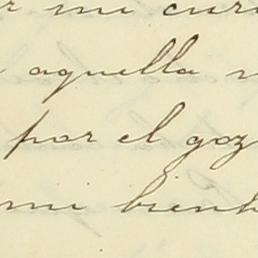 r mi cur
aquella
por el goz
mi bien